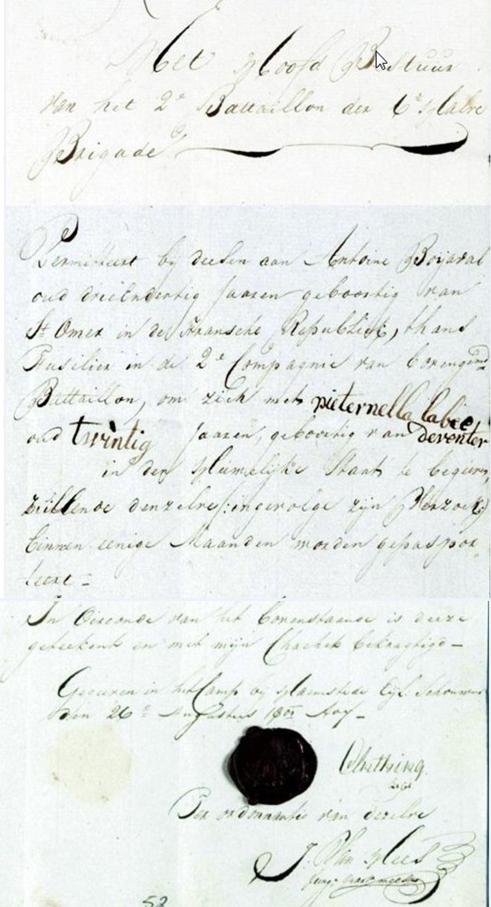 Het Hoofd Bestuur
van het 2e Battaillon der 6e Halve
Brigade
Permitteert by deesen aan Antoine
oud driëendertig Jaaren geboortig van
St Omer in de Fransche Republiek, thans
Fusilier in de 2e Compagnie van bovengem
Battaillon, om zich met pieternella labee
oud twintig Jaaren, geboortig van deventer
in den Huwelijke Staat te begeven,
zullende denzelve ingevolge zijn Verzoek
binnen eenige Maanden worden gepaspor
teert =
In Oirconde van het bovenstaande is deeze
geteekent en met mijn Chachet bekragtigd
Gegeeven in het Camp bij Haemstede Eyl. Schouwen
den 26e Augustus
Ter ordonnantie van dezelve
J. van Hees
52